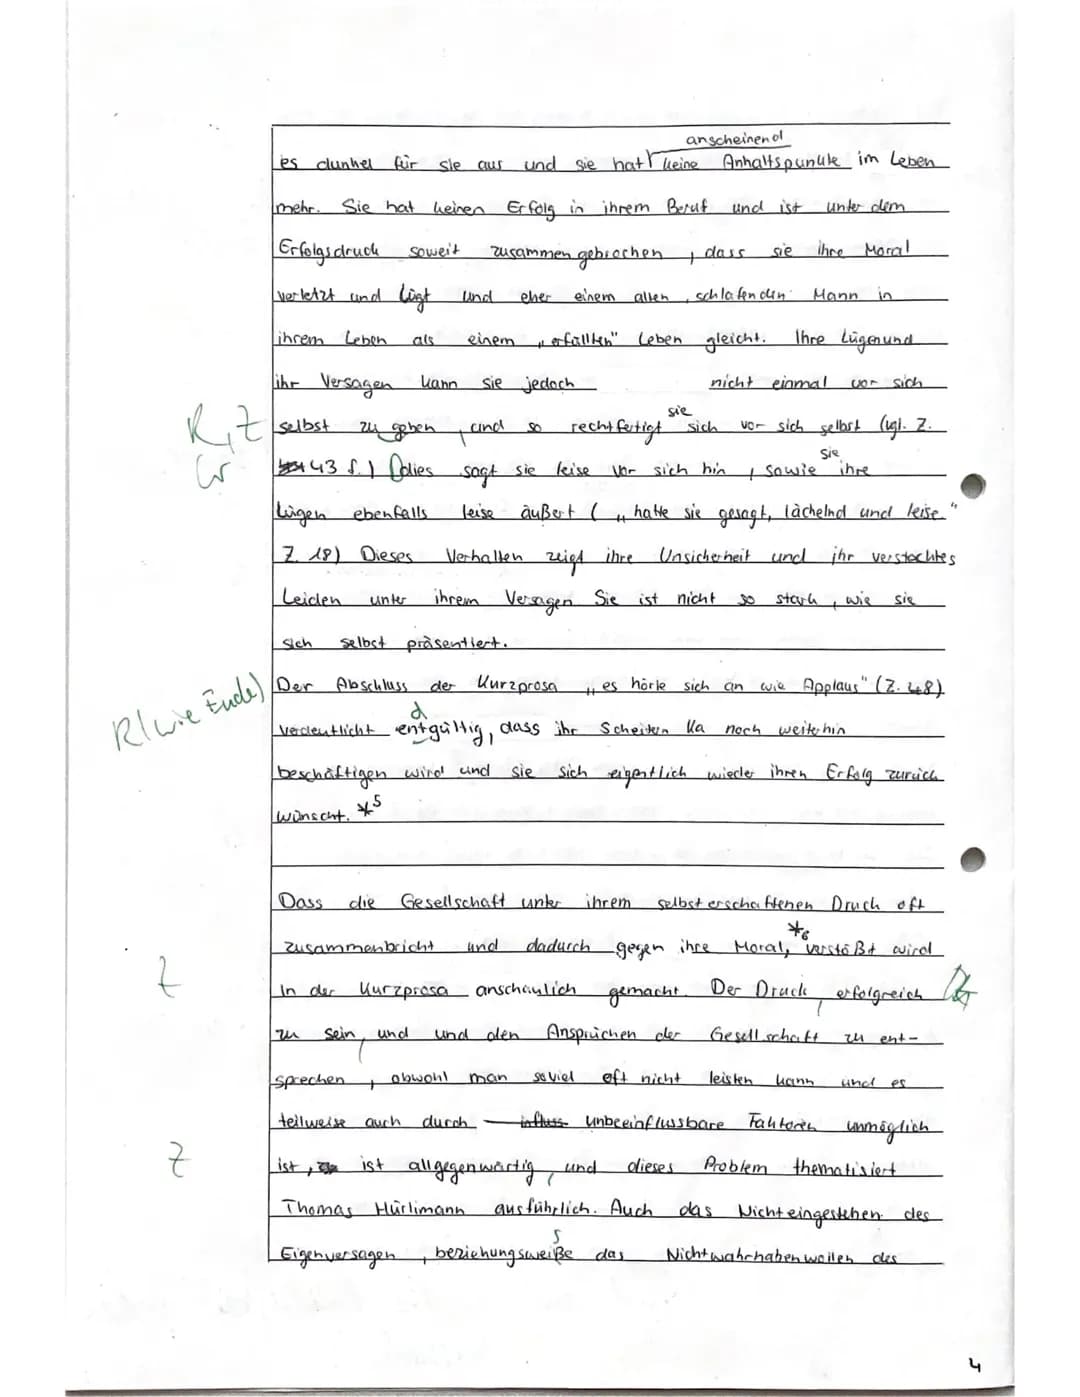 anscheinend
es dunkel für sie aus und sie hat keine Anhaltspunkte im Leben
mehr. Sie hat keinen Erfolg in ihrem Beruf und ist unter dem
Erfolgsdruck soweit zusammengebrochen, dass sie ihre Moral
verletzt und lügt und eher einem alten, schlafenden Mann in
ihrem Leben als einem „erfüllten" Leben gleicht. Ihre Lügen und
ihr Versagen kann sie jedoch nicht einmal vor sich
sie
R, Z selbst zu geben, und so rechtfertigt sich vor sich selbst (vgl. Z.
sie
Gr 43 f.) dies sagt sie leise vor sich hin, sowie ihre
Lügen ebenfalls leise äußert („hatte sie gesagt, lächelnd und leise."
Z. 18) Dieses Verhalten zeigt ihre Unsicherheit und ihr verstecktes
Leiden unter ihrem Versagen Sie ist nicht so stark, wie sie
sich selbst präsentiert.
R(wie Ende) Der Abschluss der Kurzprosa „es hörte sich an wie Applaus" (Z. 48)
d
verdeutlicht entgültig, dass ihr Scheitern Ka noch weiterhin
beschäftigen wird und sie sich eigentlich wieder ihren Erfolg zurück
wünscht. *5
Dass die Gesellschaft unter ihrem selbst erschaffenen Druck oft
*6
zusammenbricht und dadurch gegen ihre Moral, verstößt wird
Z in der Kurzprosa anschaulich gemacht. Der Druck, erfolgreich
zu sein, und und den Ansprüchen der Gesellschaft zu ent-
sprechen, obwohl man soviel oft nicht leisten kann und es
teilweise auch durch unbeeinflussbare Faktoren unmöglich
Z ist, ist allgegenwärtig, und dieses Problem thematisiert
Thomas Hürlimann ausführlich. Auch das Nichteingestehen des
s
Eigenversagen, beziehungsweiße das Nichtwahrhabenwollen des
4